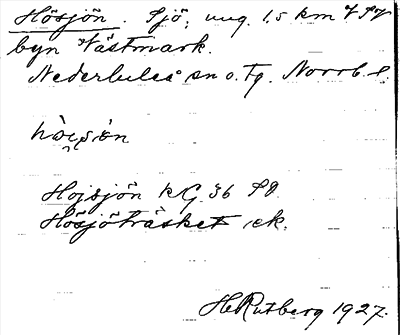 Hösjön. Sjö, ung. 1,5 km V SV
byn Västmark.
Nederluleå sn o. tg. Norrb. l.
Hojsjön kG 36
Hösjöträsket ek.
H Rutberg 1927.